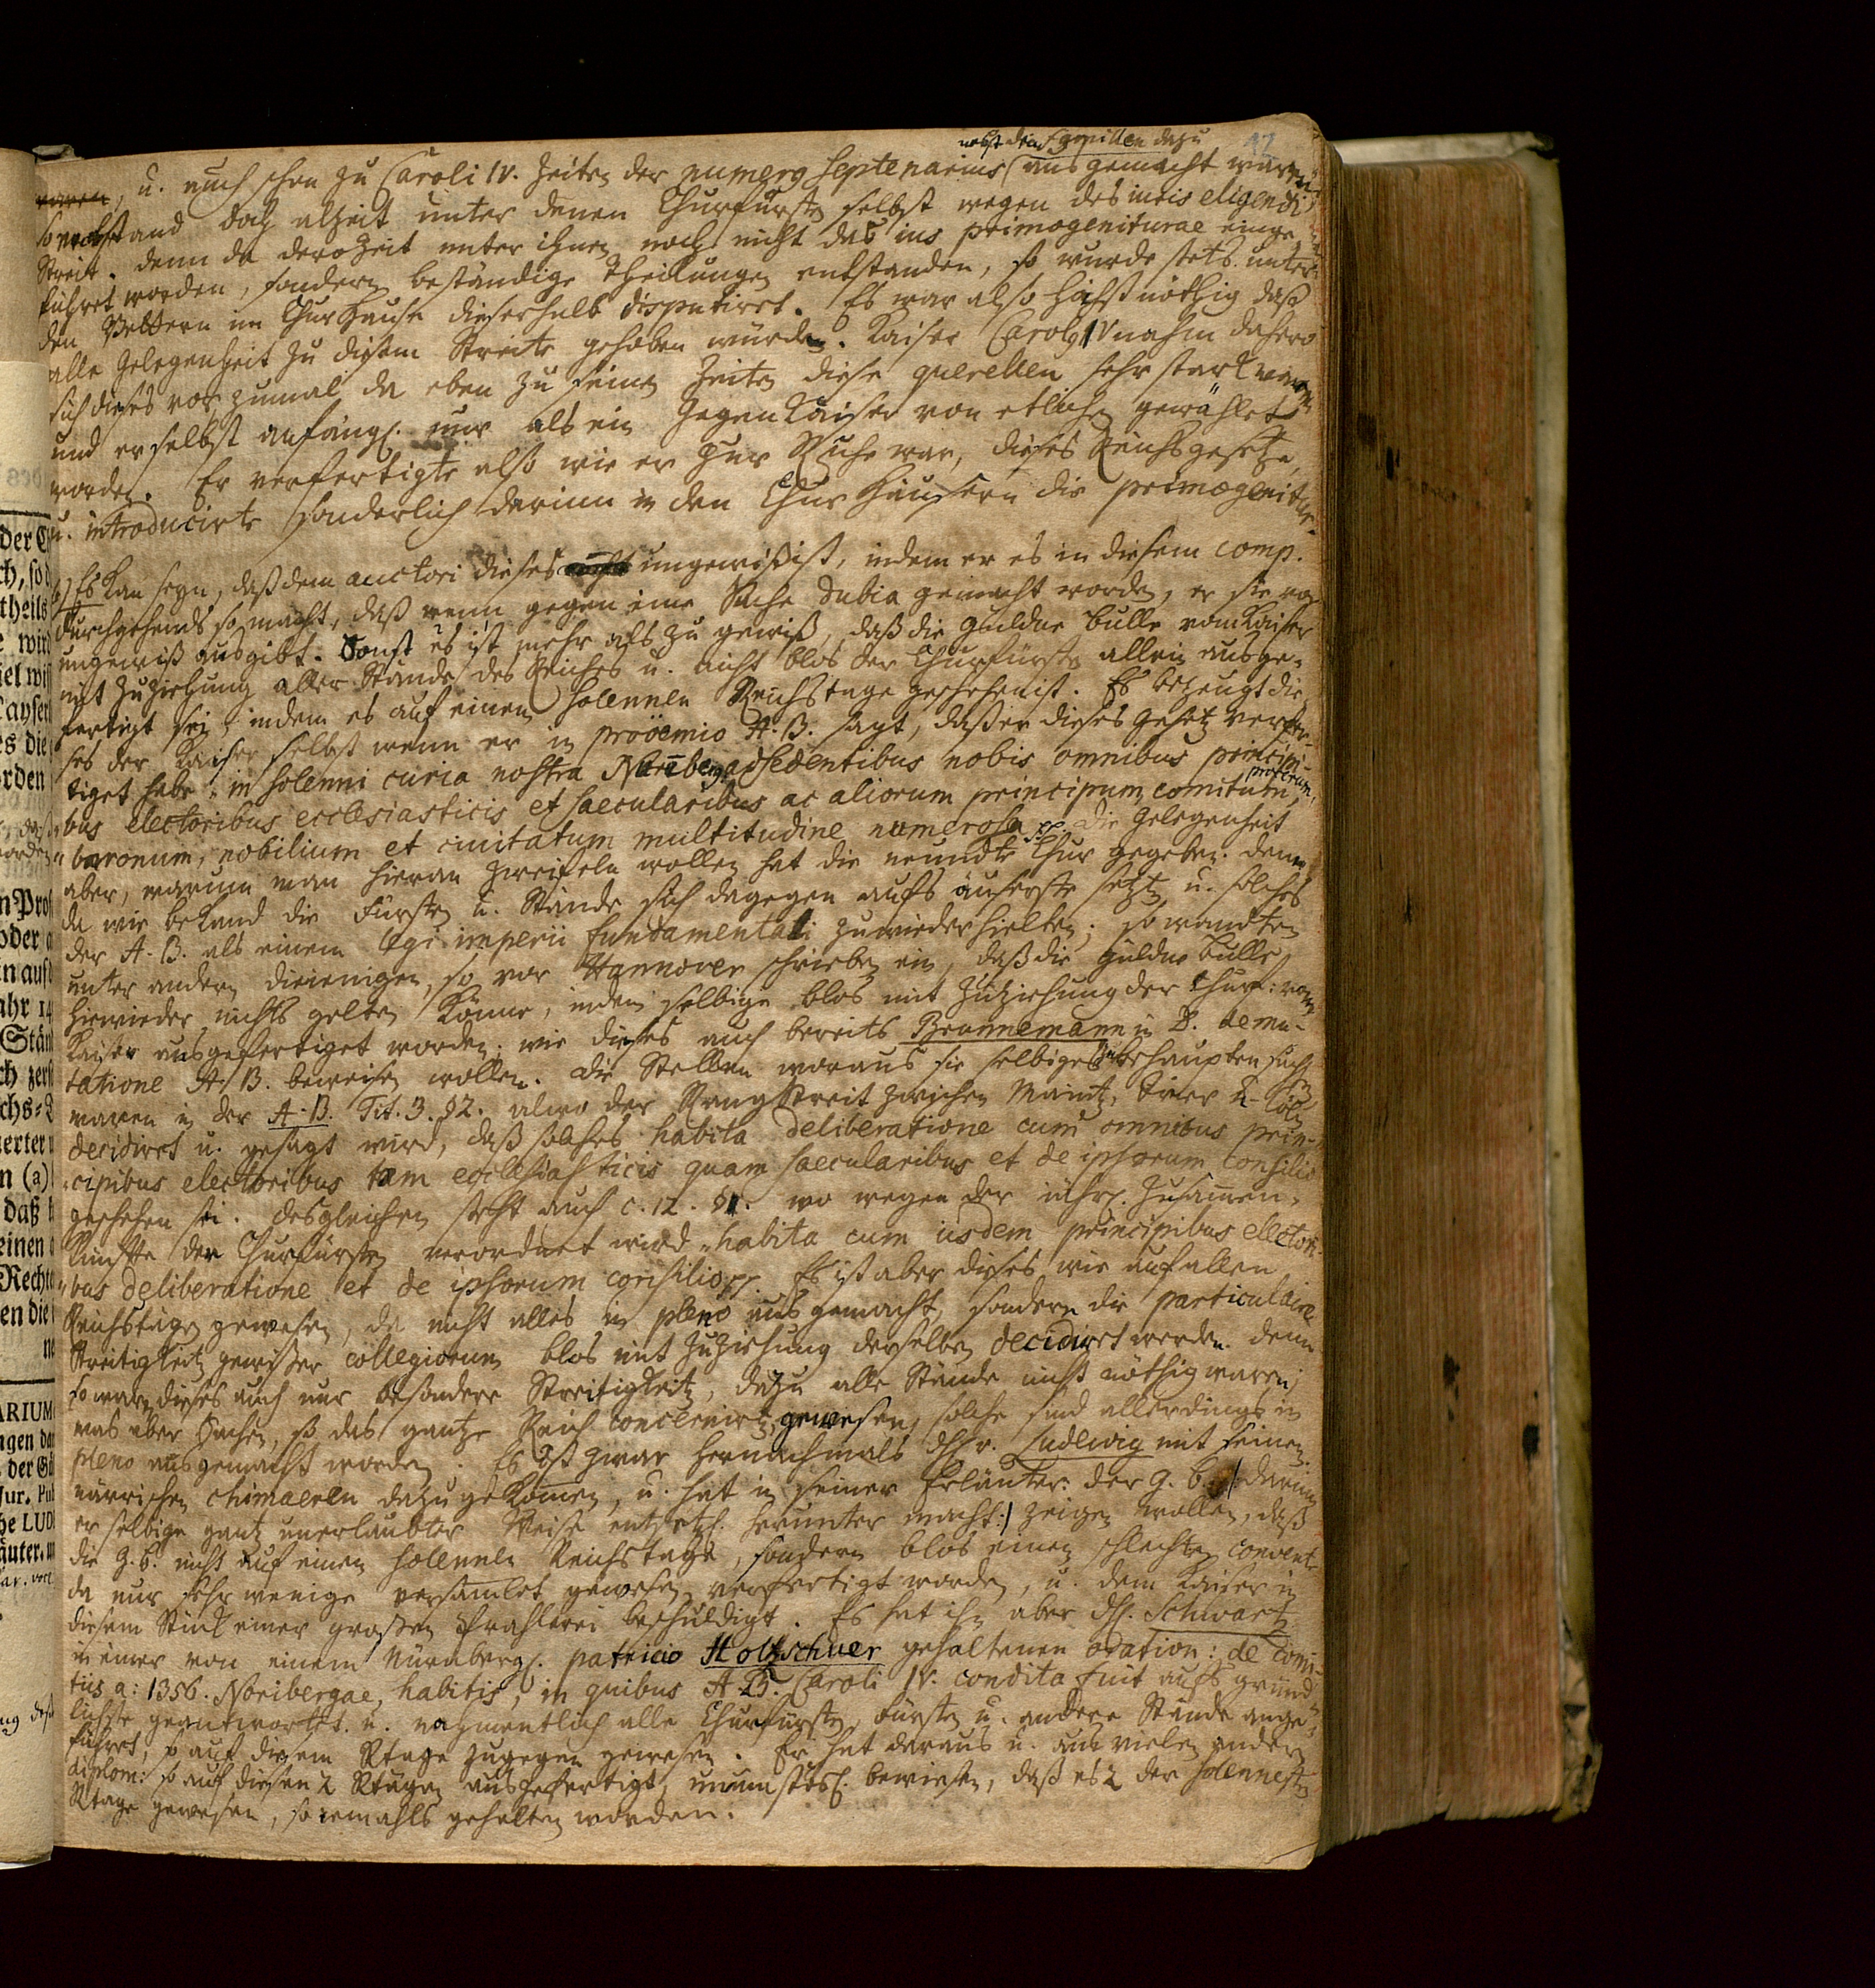 nebst den Familien dazu
37
waren, u. auch schon zu Caroli IV. Zeiten der numerus septenarius ausgemacht waren
so entstand doch alzeit unter denen Churfürsten selbst wegen des iuris eligendi
Streit. denn da derozeit unter ihnen noch nicht das ius primogeniturae einge-
führet worden, sondern beständige Theilungen entstanden, so wurde stets unter
den Vettern im Churhause dieserhalb disputiret. Es war also höchst nöthig daß
alle Gelegenheit zu diesem Streite gehoben würde. Kaiser Carolus IV nahm dahero
sich dieses vor, zumal da eben zu seinen Zeiten diese querellen sehr stark waren
und er selbst anfangs nur als ein Gegenkaiser von etlichen gewählet
worden. Er verfertigte also wie er zur Ruhe war, dieses Reichsgesetze,
u. introducirte sonderlich darinn in den Churhäusern die primogenitur.
b) Es kan seyn, daß dem auctori dieses ungewiß ist, indem er es in diesem comp.
durchgehends so macht, daß wenn gegen eine Sache dubia gemacht worden, er sie vor
ungewiß ausgibt. Sonst es ist mehr als zu gewiß, daß die Guldne Bulle vom Kaiser
mit Zuziehung aller Stände des Reiches u. nicht blos der Churfürsten allein ausge-
fertigt sei, indem es auf einem solennen Reichstage geschehen ist. Es bezeugt die-
ses der Kaiser selbst wenn er in prooemio A. B. sagt, daß er dieses Gesetz verfer-
tiget habe: in solenni curia nostra Nürnberg adsedentibus nobis omnibus principi-
bus electoribus ecclesiasticis et saecularibus ac aliorum principum, comitum, procerum,
baronum, nobilium et civitatum multitudine numerosa pp. die Gelegenheit
aber, warum man hieran zweifeln wollen hat die neundte Chur gegeben. denn
da wie bekand die Fürsten u. Stände sich dagegen aufs äuserste setzten u. solches
der A. B. als einem legi imperii fundamentali zuwieder hielten; so wandten
unter andern dieienigen, so vor Hannover schrieben ein, daß die Guldne Bulle
hierwieder nichts gelten könne, indem selbige blos mit Zuziehung der Churf: vom
Kaiser ausgefertiget worden, wie dieses auch bereits Brunnemann in D. de mu-
tatione A. B. beweisen wollen. die Stellen woraus sie selbiges zu behaupten suchen
waren in der A. B. Tit. 3. §2. alwo der Rangstreit zwischen Maintz, Trier u. Cöln
decidirt u. gesagt wird, daß solches habita deliberatione cum omnibus prin-
cipibus electoribus tam ecclesiasticis quam saecularibus et de ipsorum consilio
geschehen sei. desgleichen steht auch c. 12. §1. wo wegen der iährl. Zusamen-
künffte der Churfürsten verordnet wird „habita cum iisdem principibus electori-
„bus deliberatione et de ipsorum consilio pp. Es ist aber dieses wie auf allen
Reichstägen gewesen, da nicht alles in pleno ausgemacht, sondern die particulaire
Streitigkeiten gewisser collegiorum blos mit Zuziehung derselben decidiret werden. denn
so waren dieses auch nur besondere Streitigkeiten, dazu alle Stände nicht nöthig waren;
was aber Sachen, so das gantze Reich concernirt, gewesen, solche sind allerdings in
pleno ausgemacht worden. Es ist zwar hernachmals H. v. Ludewig mit seinen
närrischen chimaeren dazu gekomen, u. hat in seiner Erläuter: der G. B. /: darinn
er selbige gantz unerlaubter Weise entsetzl. herunter macht:/ zeigen wollen, daß
die G. B. nicht auf einem solennen Reichstage, sondern blos einen schlechten convente
da nur sehr wenige versamlet gewesen, verfertigt worden, u. dem Kaiser in
diesem Stück einer großen Prahlerei beschuldigt. Es hat ihn aber H. Schwartz
in einer von einem Nürnbergl. patricio Holtzschuer gehaltenen oration: de comi-
tiis a: 1356. Noribergae, habitis, in quibus A. B. Caroli IV. condita fuit aufs gründ-
lichste geantwortet. u. nahmentlich alle Churfürsten, Fürsten u. andere Stände ange-
führet, so auf diesem Rtage zugegen gewesen. Er hat daraus u. aus vielen andern
diplom: so auf diesen 2 Rtägen ausgefertigt, unumstösl. bewiesen, daß es 2 der solennesten
Rtage gewesen, so iemahls gehalten worden.